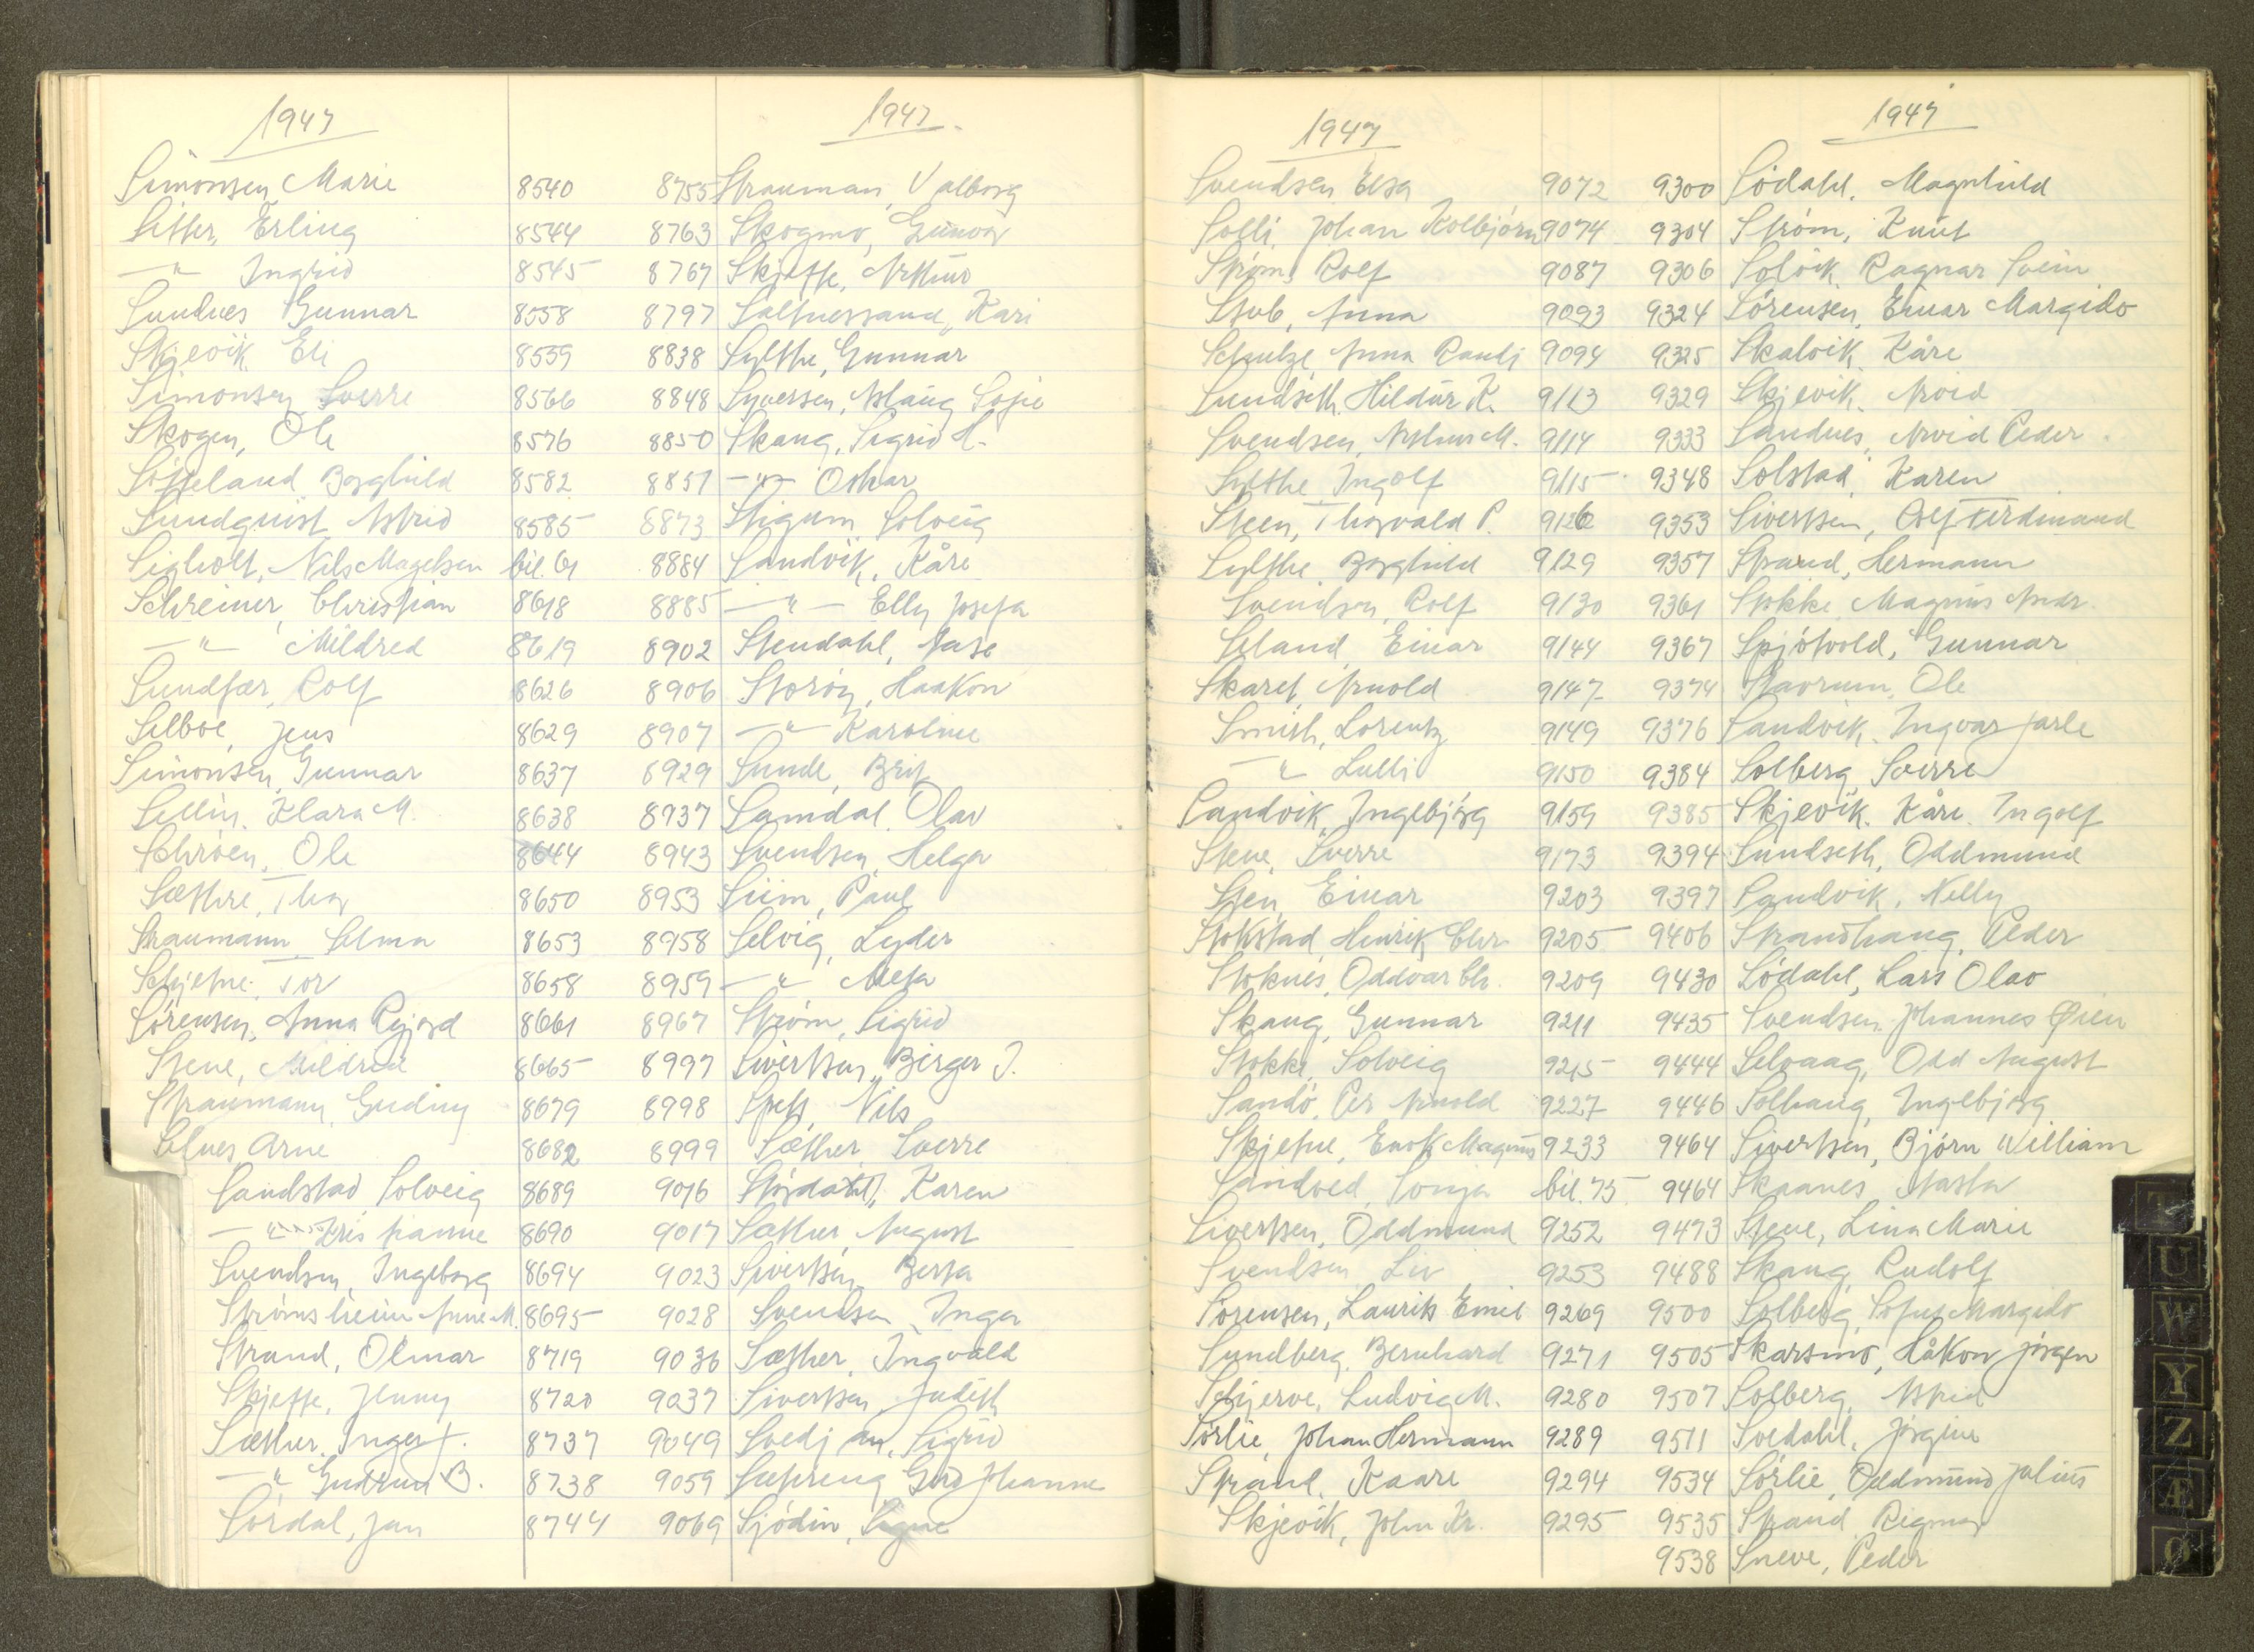 1947
Simonsen, Marie 8540
Sitter, Erling 8544
—"— Ingrid 8545
Sundnes Gunnar 8558
Skjevik, Eli 8559
Simonsen Sverre 8566
Skogen, Ole 8576
Borghild 8582
Sundquist Astrid 8585
Sigholt, Nils Magelsen bil. 61
Schreiner, Christian 8618
—"— Mildred 8619
Sundfær, Rolf 8626
Selboe, Jens 8629
Simonsen, Gunnar 8637
Sellin, Klara M. 8638
Schrøen, Ole 8644
Sæthre, Thor 8650
Straumann Selma 8653
Schjefne, Tor 8658
Sørensen, Anna 8661
Stene, Mildred 8665
Straumann, Gudny 8679
Selnes Arne 8682
Sandstad, Solveig 8689
—"— Kristianne 8690
Svendsen, Ingeborg 8694
Strømsheim Anne M. 8695
Strand, Olmar 8719
Skjefte, Jenny 8720
Sæther, Inger J. 8737
—"— Gudrun B. 8738
Sørdal, Jan 8744
1947.
8755 Strauman, Valborg
8763 Skogmo, Gunvor
8767 Skjefte, Arthur
8797 Saltnessand, Kari
8838 Sylthe, Gunnar
8848 Syversen, Aslaug Sofie
8850 Skaug, Sigrid H.
8851 —"— Oskar
8873 Stigum Solveig
8884 Sandvik, Kåre
8885 —"— Elly Josefa
8902 Stendahl, Aase
8906 Storøy, Haakon
8907 —"— Karoline
8929 Sunde, Brit
8937 Samdal, Olav
8943 Svendsen, Helga
8953 Siim, Paul
8958 Selvig, Lyder
8959 —"— Meta
8967 Strøm, Sigrid
8997 Sivertsen, Birger J.
8998 Spets, Nils
8999 Sæther Sverre
9016 Størdahl, Karen
9017 Sæther, August
9023 Sivertsen Berta
9028 Svendsen, Inga
9036 Sæther, Ingvald
9037 Sivertsen, Judith
9049 Svedjan, Sigrid
9059 Sætreng Gerd Johanne
9069 Sjödin, Signe
1947
Svendsen Elsa 9072
Solli, Johan Kolbjørn 9074
Strøm, Rolf 9087
Stub, Anna 9093
Schulze, Anna Pauli 9094
Sundseth, Hildur K. 9113
Svendsen, Arthur M. 9114
Sylthe, Ingolf 9115
Steen, Thorvald P. 9126
Sylthe, Borghild 9129
Svendsen, Rolf 9130
Seland, Einar 9144
Skaret, Arnold 9147
Smith, Lorentz 9149
—"— Lulli 9150
Sandvik, Ingebjørg 9159
Stene, Sverre 9173
Sten, Einar 9203
Stokstad, Henrik Chr. 9205
Stoknes, Oddvar Chr. 9209
Skaug, Gunnar 9211
Stokke, Solveig 9215
Sandø, Per Arnold 9227
Skjefne, Enok Magnus 9233
Sandved, Sonja bil. 75
Sivertsen, Oddmund 9252
Svendsen Liv 9253
Sørensen, Laurits Emil 9269
Sundberg, Bernhard 9271
Schjerve, Ludvig M. 9280
Sørlie, Johan Hermann 9289
Strand, Kaare 9294
Skjevik, John Kr. 9295
1947
9300 Sødahl, Magnhild
9304 Strøm, Knut
9306 Solvik, Ragnar Svein
9324 Sørensen, Einar Margido
9325 Skalvik, Kåre
9329 Skjevik, Arvid
9333 Sandnes, Arvid Peder
9348 Solstad, Karen
9353 Sivertsen, Rolf Ferdinand
9357 Strand, Hermann
9361 Stokke, Magnus Andr.
9367 Spjøtvold, Gunnar
9374 Stavrum, Ole
9376 Sandvik, Ingvar Jarle
9384 Solberg, Sverre
9385 Skjevik, Kåre Ingolf
9394 Sundseth, Oddmund
9397 Sandvik, Nelly
9406 Strandhaug, Peder
9430 Sødahl, Lars Olav
9435 Svendsen Johannes Øien
9444 Selvaag, Odd August
9446 Solhaug, Ingebjørg
9464 Sivertsen, Bjørn William
9464 Skaanes Aasta
9473 Stene, Lina Marie
9488 Skaug, Rudolf
9500 Solberg, Sofus Margido
9505 Skarsmo, Håkon Jørgen
9507 Solberg, Astrid
9511 Svedahl, Jørgine
9534 Sørlie, Oddmund Julius
9535 Strand, Rigmor
9538 Sneve, Peder
T
U
W
Y
Z
Æ
Ø